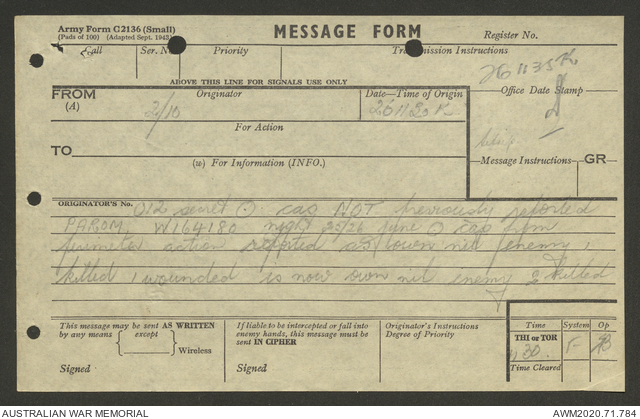 Army Form C2136 (Small)
(Pads of 100) (Adapted Sept. 1943)
MESSAGE FORM
Register No.
Call Ser. No. Priority Transmission Instructions
261135K
ABOVE THIS LINE FOR SIGNALS USE ONLY
FROM Originator Date—Time of Origin Office Date Stamp
(A) 2/10 261130K
For Action
TO
(w) For Information (INFO.) Message Instructions GR
ORIGINATOR'S No. 012 secret ⊙ cas NOT previously reported
PAROM W164180 night 25/26 June ⊙ from
perimeter action reported as own nil enemy 1
killed 1 wounded is now own nil enemy 2 killed
This message may be sent AS WRITTEN
by any means except
Wireless
Signed
If liable to be intercepted or fall into
enemy hands, this message must be
sent IN CIPHER
Signed
Originator's Instructions
Degree of Priority
Time System Op
THI or TOR
1130 F
Time Cleared
AUSTRALIAN WAR MEMORIAL AWM2020.71.784